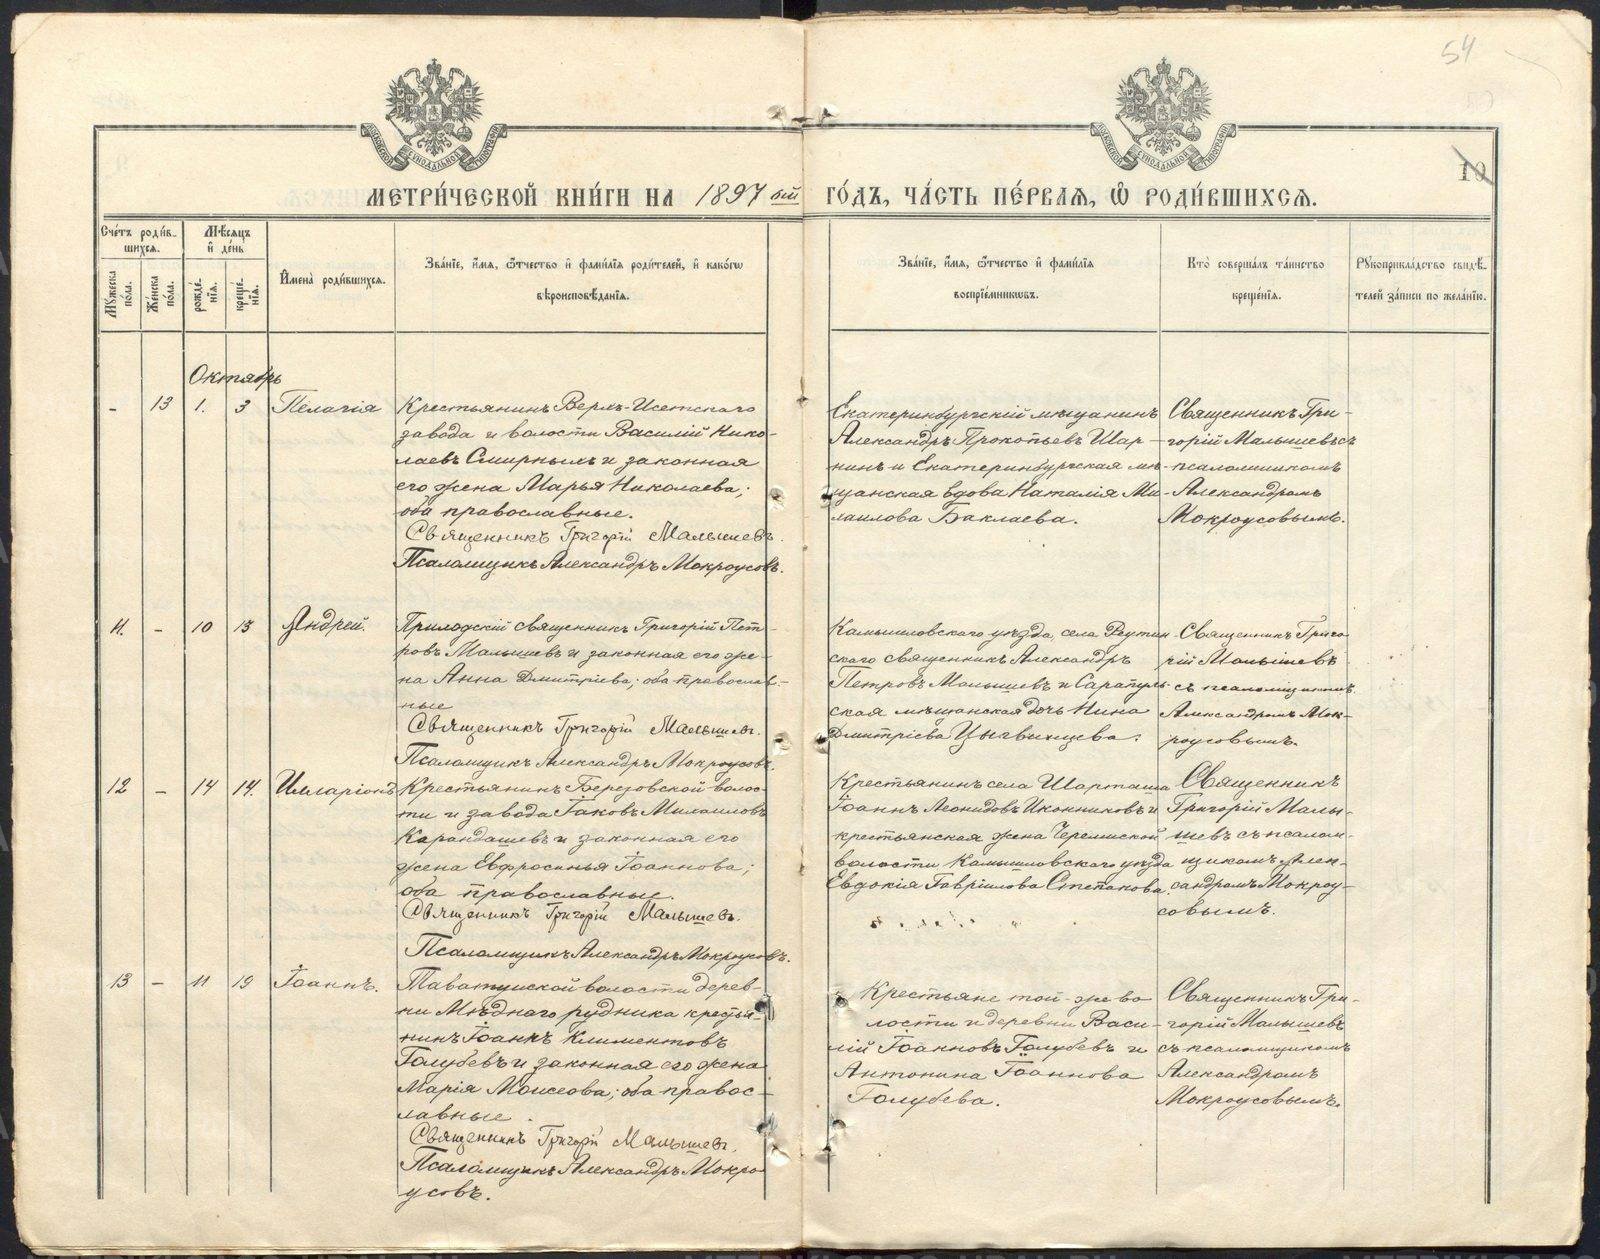 54
10
МЕТРИ́ЧЕСКОЙ КНИ́ГИ НА 1897 ый ГО́ДЪ, ЧА́СТЬ ПЕ́РВАЯ, Ѡ РОДИ́ВШИХСЯ.
Счéтъ роди́в-
шихся.
Мѣ́сяцъ
и́ де́нь
Мужеска
по́ла.
Же́нска
по́ла.
рожде́-
нїя.
креще́-
нїя.
И҆мена̀ роди́вшихся.
Зва́нїе, и҆́мя, ѻ҆́тчество и҆ фами́лїя роди́телей, и҆ како́гѡ
вѣроисповѣ́данїя.
Зва́нїе, и҆́мя, ѻ҆́тчество и҆ фами́лїя
воспрїе́мникѡвъ.
Кто̀ соверша́лъ та́инство
креще́нїя.
Рꙋкоприкла́дство свидѣ́-
телей за́писи по жела́нїю.
Октябрь
- 13 1. 3 Пелагія
Крестьянинъ Верхъ-Исетскаго
завода и волости Василій Нико-
лаевъ Смирныхъ и законная
его жена Марья Николаева;
оба православные.
Священникъ Григорій Малышевъ.
Псаломщикъ Александръ Мокроусовъ.
Екатеринбургскій мѣщанинъ
Александръ Прокопьевъ Шар-
нинъ и Екатеринбургская мѣ-
щанская вдова Наталія Ми-
хаилова Баклаева.
Священникъ Гри-
горій Малышевъ съ
псаломщикомъ
Александромъ
Мокроусовымъ.
11. - 10 13 Андрей.
Приходскій священникъ Григорій Пет-
ровъ Малышевъ и законная его же-
на Анна Дмитріева; оба православ-
ные
Священникъ Григорій Малышевъ.
Псаломщикъ Александръ Мокроусовъ.
Камышловскаго уѣзда, села Реутин
скаго священникъ Александръ
Петровъ Малышевъ и Сарапуль-
ская мѣщанская дочь Нина
Дмитріева
Священникъ Григо
рій Малышевъ
съ псаломщикомъ
Александромъ Мок-
роусовымъ.
12 - 14 14. Илларіонъ
Крестьянинъ Березовской волос-
ти и завода Іаковъ Михаиловъ
Карандашевъ и законная его
жена Евфросинья Іоаннова;
оба православные.
Священникъ Григорій Малышевъ.
Псаломщикъ Александръ Мокроусовъ.
Крестьянинъ села Шарташа
Іоаннъ Леонидовъ Иконниковъ и
крестьянская жена Черемиской
волости Камышловскаго уѣзда
Евдокія Гавріилова Степанова.
Священникъ
Григорій Малы-
шевъ съ псалом-
щикомъ Алек-
сандромъ Мокроу-
совымъ.
13 - 11 19 Іоаннъ.
Таватуйской волости дерев-
ни Мѣднаго рудника кресть-
янинъ Іоаннъ Климентовъ
Голубевъ и законная его жена
Марія Моисеова; оба правос-
лавные.
Священникъ Григорій Малышевъ.
Псаломщикъ Александръ Мокро
усовъ.
Крестьяне той-же во
лости и деревни Васи-
лій Іоанновъ Голубевъ и
Антонина Іоаннова
Голубева.
Священникъ Гри-
горій Малышевъ
съ псаломщикомъ
Александромъ
Мокроусовымъ.